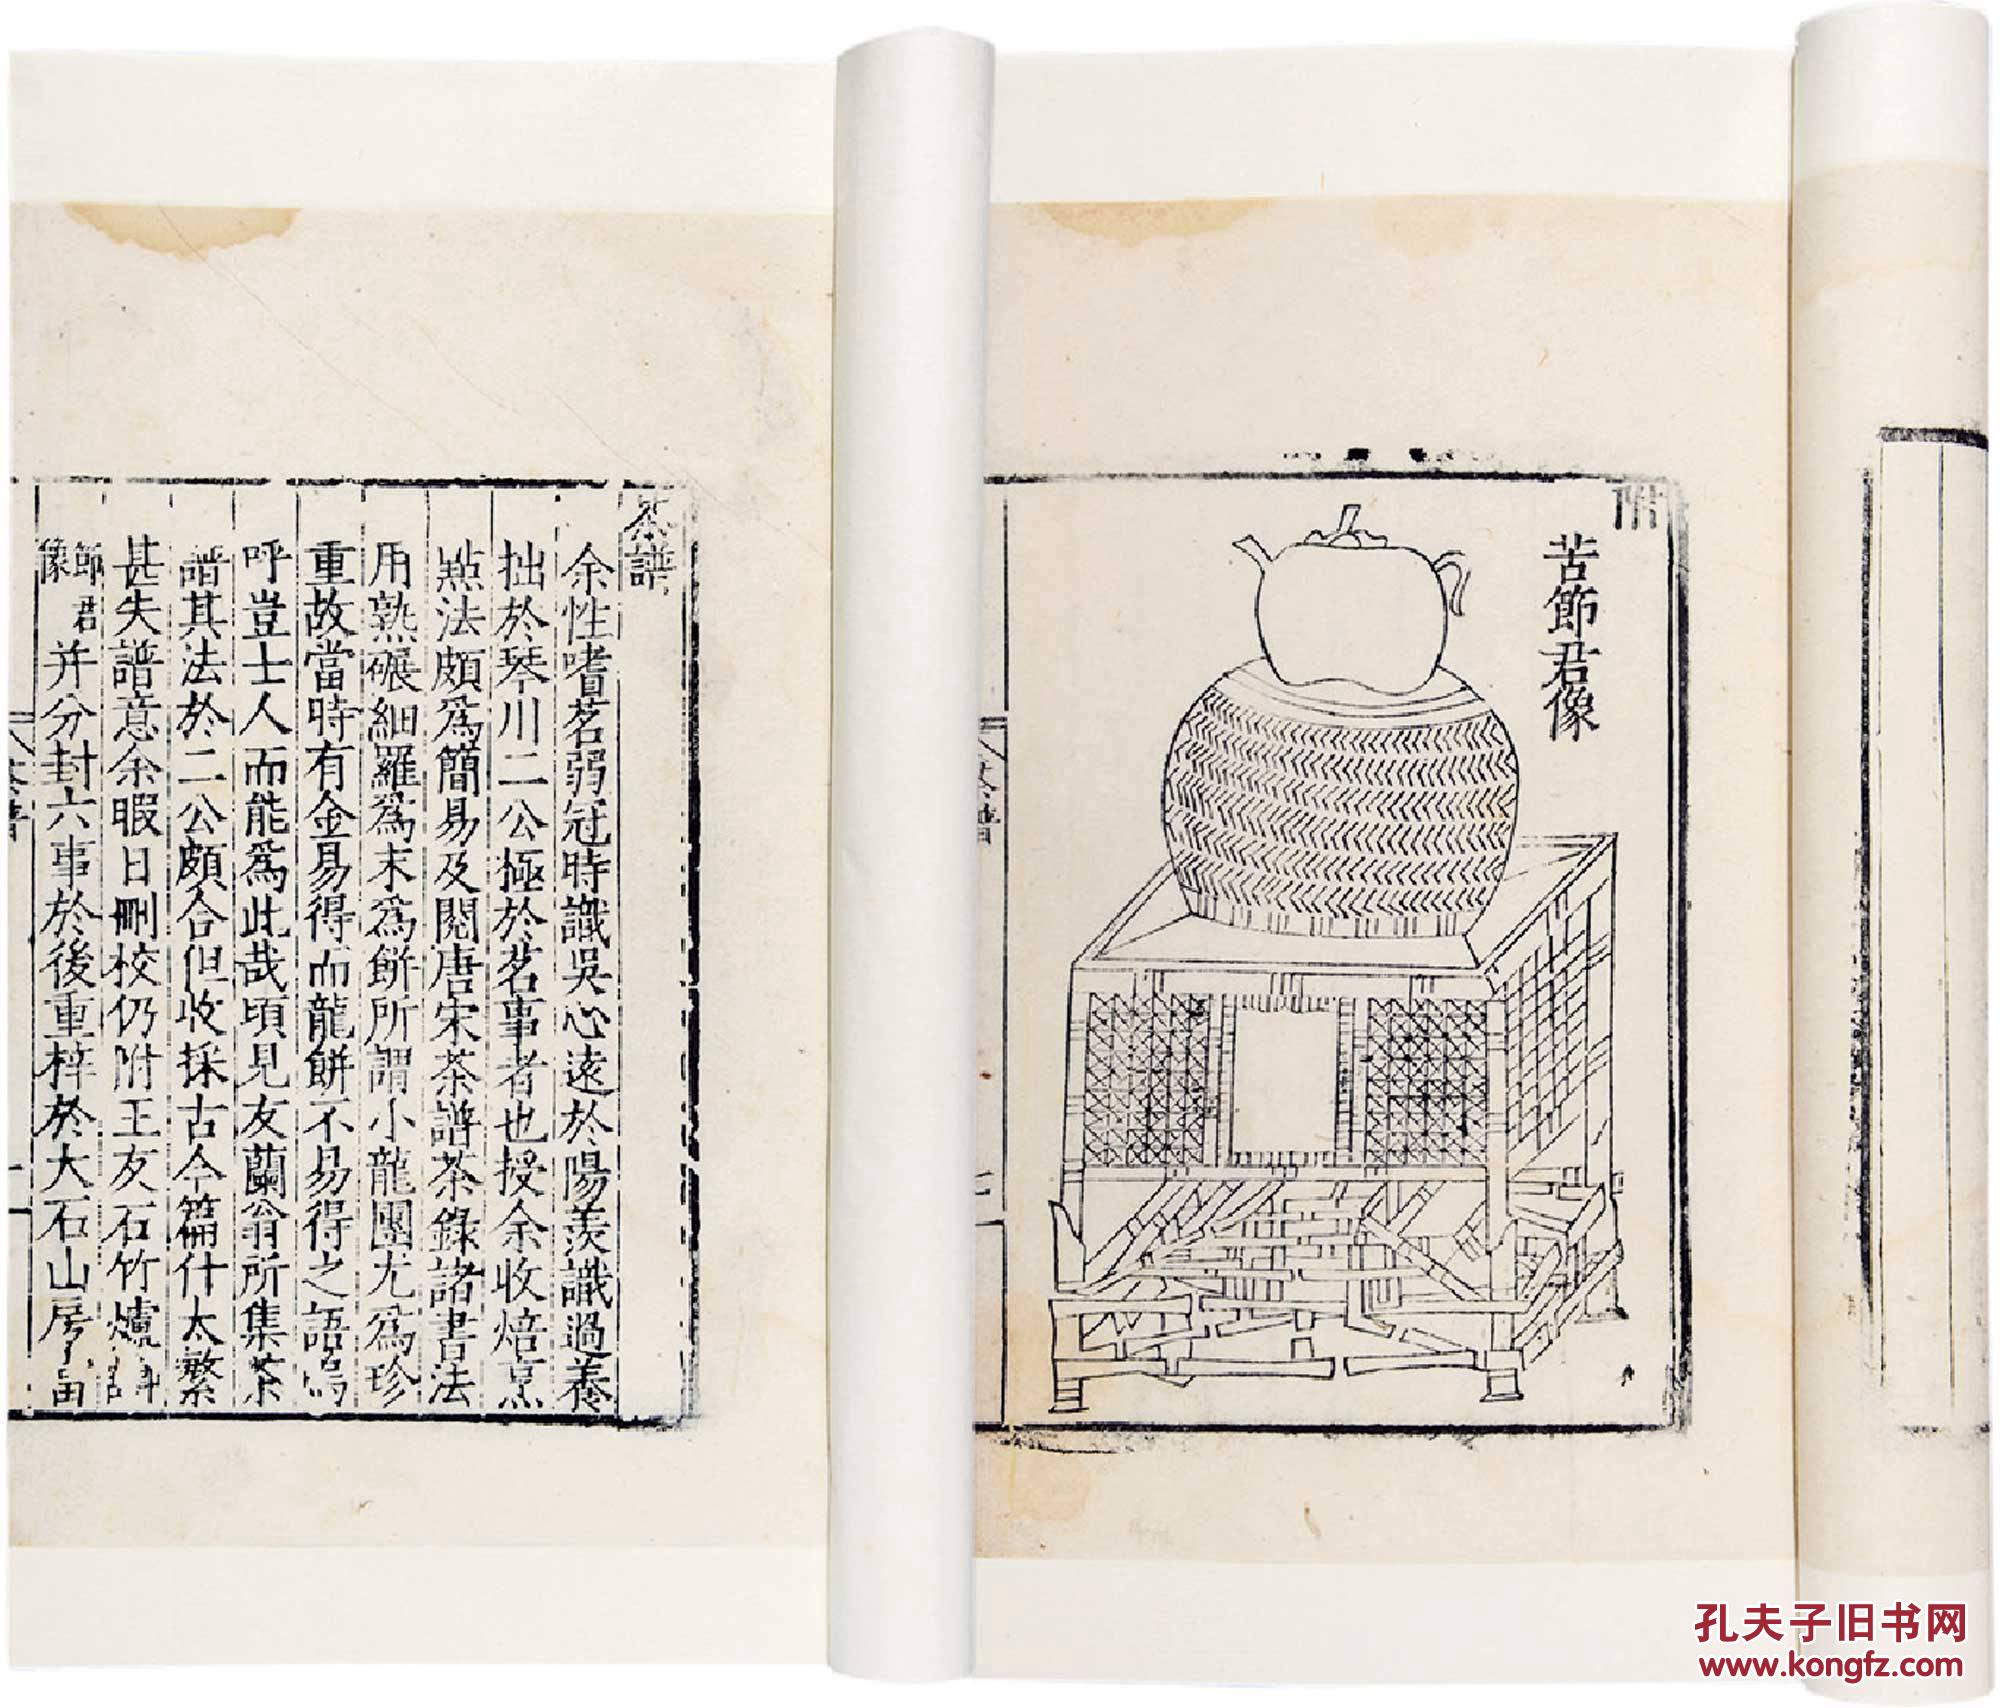 附
苦節君像
茶譜
茶譜
余性嗜茗弱冠時識吳心遠於陽羨識過養
拙於琴川二公極於茗事者也授余收焙烹
點法頗爲簡易及閱唐宋茶譜茶錄諸書法
用熟碾細羅爲末爲餅所謂小龍團尤爲珍
重故當時有金易得而龍餅不易得之語嗚
呼豈士人而能爲此哉頃見友蘭翁所集茶
譜其法於二公頗合但收採古今篇什太繁
甚失譜意余暇日刪校仍附王友石竹爐
節君像并分封六事於後重梓於大石山房
茶譜
孔夫子旧书网
www.kongfz.com